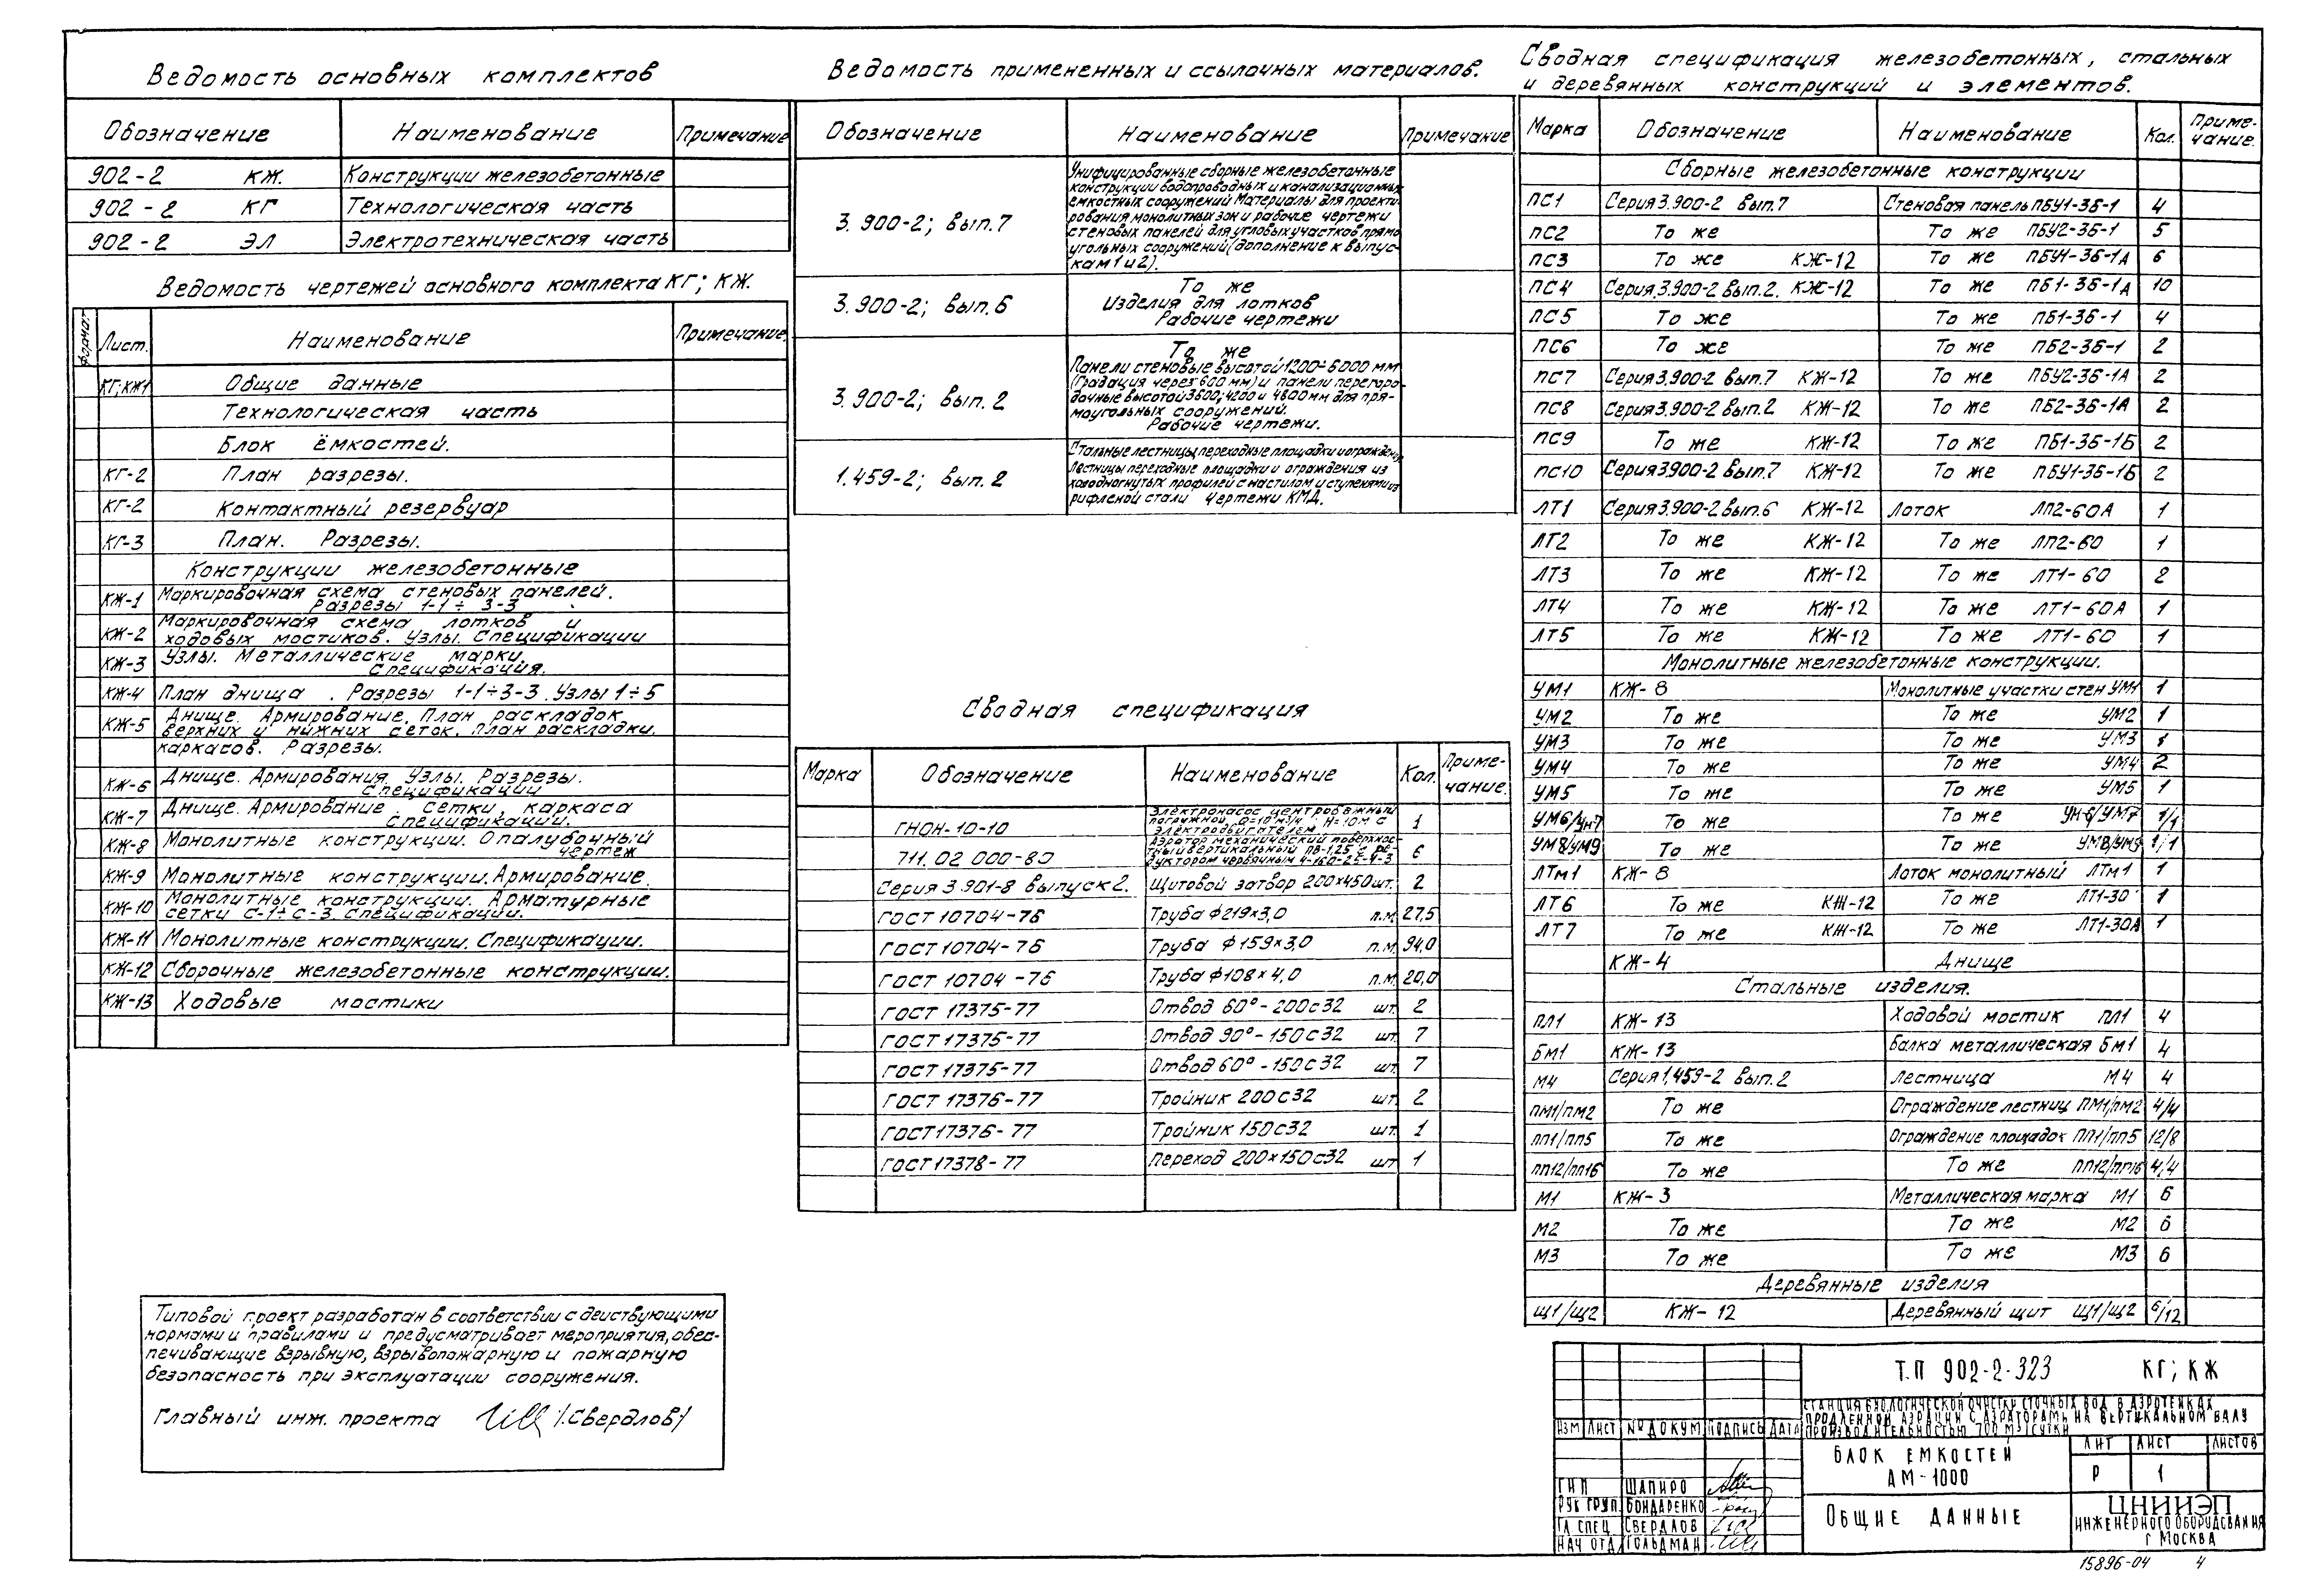 Ведомость основных комплектов
Обозначение Наименование Примечание
902-2 КЖ. Конструкции железобетонные
902-2 КГ Технологическая часть
902-2 ЭЛ Электротехническая часть
Ведомость чертежей основного комплекта КГ; КЖ.
Формат Лист. Наименование Примечание.
КГ;КЖ1 Общие данные
Технологическая часть
Блок ёмкостей.
КГ-2 План разрезы.
КГ-2 Контактный резервуар
КГ-3 План. Разрезы.
Конструкции железобетонные
КЖ-1 Маркировочная схема стеновых панелей.
Разрезы 1-1÷3-3
КЖ-2 Маркировочная схема лотков и
ходовых мостиков. Узлы. Спецификации
КЖ-3 Узлы. Металлические марки.
Спецификация.
КЖ-4 План днища. Разрезы 1-1÷3-3. Узлы 1÷5
КЖ-5 Днище. Армирование. План раскладок
верхних и нижних сеток. План раскладки.
каркасов. Разрезы.
КЖ-6 Днище. Армирования. Узлы. Разрезы.
Спецификации
КЖ-7 Днище. Армирование. сетки, каркаса
Спецификации.
КЖ-8 Монолитные конструкции. Опалубочный
чертеж
КЖ-9 Монолитные конструкции. Армирование.
КЖ-10 Монолитные конструкции. Арматурные
сетки С-1÷С-3 Спецификации.
КЖ-11 Монолитные конструкции. Спецификации.
КЖ-12 Сборочные железобетонные конструкции.
КЖ-13 Ходовые мостики
Типовой проект разработан в соответствии с действующими
нормами и правилами и предусматривает мероприятия, обес-
печивающие взрывную, взрывопожарную и пожарную
безопасность при эксплуатации сооружения.
Главный инж. проекта /.Свердлов/
Ведомость примененных и ссылочных материалов.
Обозначение Наименование Примечание
3.900-2; вып.7 Унифицированные сборные железобетонные
конструкции водопроводных и канализационных
емкостных сооружений Материалы для проекти-
рования монолитных зон и рабочие чертежи
стеновых панелей для угловых участков прямо
угольных сооружений (дополнение к выпус-
кам 1 и 2).
3.900-2; вып.6 То же
Изделия для лотков
Рабочие чертежи
3.900-2; вып.2 То же
Панели стеновые высотой 1200÷6000 мм
(Градация через 600 мм) и панели перегоро-
дочные высотой 3600; 4200 и 4800 мм для пря-
моугольных сооружений.
Рабочие чертежи.
1.459-2; вып.2 Стальные лестницы, переходные площадки и огражден.
Лестницы переходные площадки и ограждения из
холодногнутых профилей с настилом и ступенями из
рифленой стали Чертежи КМД.
Сводная спецификация
Марка Обозначение Наименование Кол. Приме-
чание.
ГНОН-10-10 Электронасос центробежный
погружной, Q=10м³/ч; H=10м с
электродвигателем 1
711.02 000-80 Аэратор механический поверхнос-
тный вертикальный ПВ-1,25 с ре-
дуктором червячным Ч-160-25-4-3 6
Серия 3.901-8 выпуск 2. Щитовой затвор 200×450 шт. 2
ГОСТ 10704-76 Труба ф219×3,0 п.м. 27,5
ГОСТ 10704-76 Труба ф159×3,0 п.м. 94,0
ГОСТ 10704-76 Труба ф108×4,0 п.м. 20,0
ГОСТ 17375-77 Отвод 60°-200с32 шт. 2
ГОСТ 17375-77 Отвод 90°-150с32 шт. 7
ГОСТ 17375-77 Отвод 60°-150с32 шт. 7
ГОСТ 17376-77 Тройник 200с32 шт. 2
ГОСТ 17376-77 Тройник 150с32 шт. 1
ГОСТ 17378-77 Переход 200×150с32 шт 1
Сводная спецификация железобетонных, стальных
и деревянных конструкций и элементов.
Марка Обозначение Наименование Кол. Приме-
чание.
Сборные железобетонные конструкции
ПС1 Серия 3.900-2 вып.7 Стеновая панель ПБУ1-36-1 4
ПС2 То же То же ПБУ2-36-1 5
ПС3 То же КЖ-12 То же ПБУ1-36-1А 6
ПС4 Серия.3.900-2 вып.2. КЖ-12 То же ПБ1-36-1А 10
ПС5 То же То же ПБ1-36-1 4
ПС6 То же То же ПБ2-36-1 2
ПС7 Серия 3.900-2 вып.7 КЖ-12 То же ПБУ2-36-1А 2
ПС8 Серия 3.900-2 вып.2 КЖ-12 То же ПБ2-36-1А 2
ПС9 То же КЖ-12 То же ПБ1-36-1Б 2
ПС10 Серия 3.900-2 вып.7 КЖ-12 То же ПБУ1-36-1Б 2
ЛТ1 Серия 3.900-2 вып.6 КЖ-12 Лоток ЛП2-60А 1
ЛТ2 То же КЖ-12 То же ЛП2-60 1
ЛТ3 То же КЖ-12 То же ЛТ1-60 2
ЛТ4 То же КЖ-12 То же ЛТ1-60А 1
ЛТ5 То же КЖ-12 То же ЛТ1-60 1
Монолитные железобетонные конструкции.
УМ1 КЖ-8 Монолитные участки стен УМ1 1
УМ2 То же То же УМ2 1
УМ3 То же То же УМ3 1
УМ4 То же То же УМ4 2
УМ5 То же То же УМ5 1
УМ6/УМ7 То же То же УМ6/УМ7 1/1
УМ8/УМ9 То же То же УМ8/УМ9 1/1
ЛТм1 КЖ-8 Лоток монолитный ЛТм1 1
ЛТ6 То же КЖ-12 То же ЛТ1-30 1
ЛТ7 То же КЖ-12 То же ЛТ1-30А 1
КЖ-4 Днище
Стальные изделия.
ПЛ1 КЖ-13 Ходовой мостик ПЛ1 4
Бм1 КЖ-13 Балка металлическая Бм1 4
М4 Серия 1.459-2 вып.2 Лестница М4 4
ПМ1/ПМ2 То же Ограждение лестниц ПМ1/ПМ2 4/4
ПП1/ПП5 То же Ограждение площадок ПП1/ПП5 12/8
ПП12/ПП16 То же То же ПП12/ПП16 4/4
М1 КЖ-3 Металлическая марка М1 6
М2 То же То же М2 6
М3 То же То же М3 6
Деревянные изделия
Щ1/Щ2 КЖ-12 Деревянный щит Щ1/Щ2 6/12
Т.П 902-2-323 КГ; КЖ
СТАНЦИЯ БИОЛОГИЧЕСКОЙ ОЧИСТКИ СТОЧНЫХ ВОД В АЭРОТЕНКАХ
ПРОДЛЕННОЙ АЭРАЦИИ С АЭРАТОРАМИ НА ВЕРТИКАЛЬНОМ ВАЛУ
ПРОИЗВОДИТЕЛЬНОСТЬЮ 700 М3/СУТКИ
ИЗМ ЛИСТ № ДОКУМ ПОДПИСЬ ДАТА
БЛОК ЕМКОСТЕЙ
АМ-1000
ЛИТ ЛИСТ ЛИСТОВ
Р 1
ГИП ШАПИРО
РУК ГРУП. БОНДАРЕНКО
ГЛ СПЕЦ СВЕРДЛОВ
НАЧ ОТД ГОЛЬДМАН
ОБЩИЕ ДАННЫЕ
ЦНИИЭП
ИНЖЕНЕРНОГО ОБОРУДОВАНИЯ
Г МОСКВА
15896-04 4